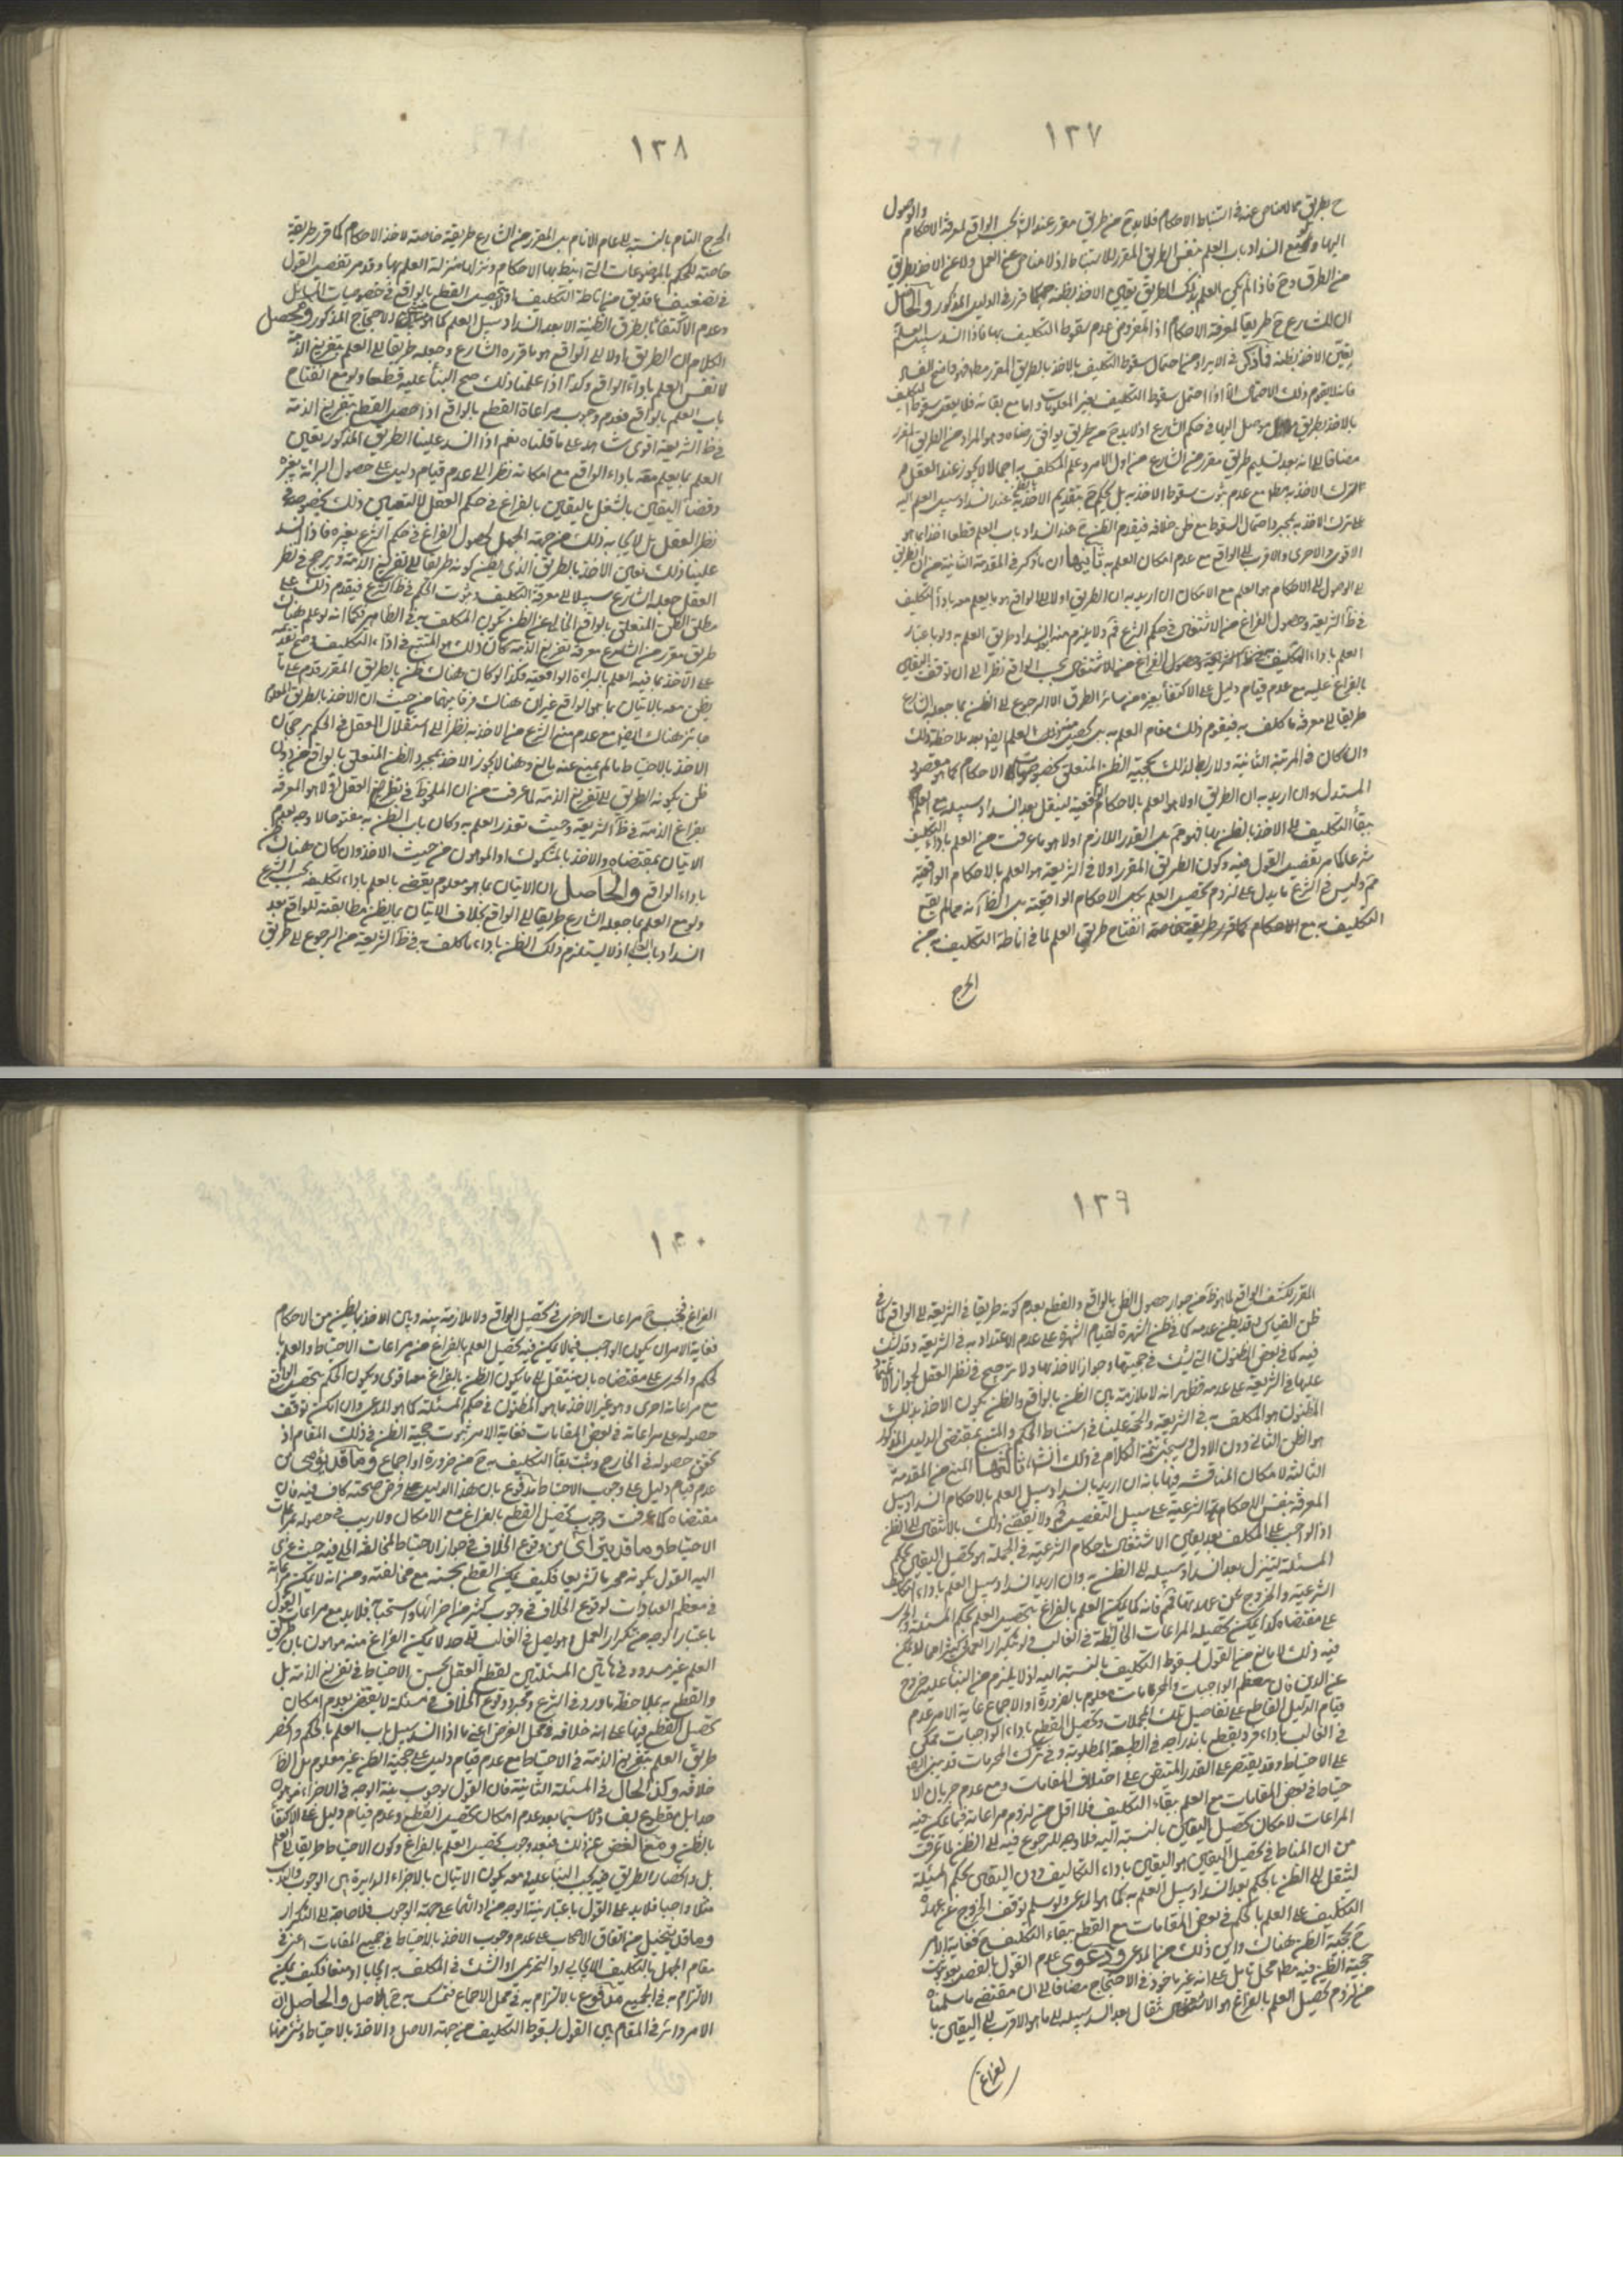 ١٣٧
ح بطريق لا مناص عنه في استنباط الاحكام فلا بد من طريق مقرر عند الش بحسب الواقع لمعرفة الاحكام والوصول
اليها وح انسداد باب العلم بنفس الطريق المقرر للاستنباط اذ لا مناص عن العمل ولا عن الاخذ بطريق
من الطرق وح فاذا لم يكن العلم بذلك الطريق تعين الاخذ بظنه كما قرر في الدليل المذكور والحاصل
ان للشارع ح طريقا لمعرفة الاحكام اذ المفروض عدم سقوط التكليف بها فاذا انسد سبيل العلم
تعين الاخذ بظنه فما ذكر في الايراد من احتمال سقوط التكليف بالاخذ بالطريق المقرر مط فهو فاضح الفساد
بالاخذ بطريق موصل اليها في حكم الشارع اذ لا بد ح من طريق يوافق رضاه وهو المراد من الطريق المقرر
مضافا الى انه بعد تسليم طريق مقرر من الشارع من اول الامر وعلم المكلف به اجمالا لا يجوز عند العقل
على ترك الاخذ به بمجرد احتمال السقوط مع ظن خلافه فيقدم الظن ح عند انسداد باب العلم قطعا اخذا بما هو
الاقوى والاحرى والاقرب الى الواقع مع عدم امكان العلم به ثانيها ان ما ذكر في المقدمة الثانية من ان الطريق
الى الوصول الى الاحكام هو العلم مع الامكان ان اريد به ان الطريق اولا الى الواقع هو ما يعلم معه باداء التكليف
في ظ الشريعة وحصول الفراغ من الاشتغال في حكم الشرع فم ولا يلزم منه بعد انسداد طريق العلم به ولو باعتبار
بالفراغ عليه مع عدم قيام دليل على الاكتفاء بغيره من سائر الطرق الا الرجوع الى الظن بما جعله الشارع
طريقا الى معرفة ما كلف به فيقوم ذلك مقام العلم به
وان كان في المرتبة الثانية ولا ربط لذلك بحجية الظن المتعلق بخصوصيات الاحكام كما هو مقصود
المستدل وان اريد به ان الطريق اولا هو العلم بالاحكام الواقعية لينتقل بعد انسداد سبيله مع العلم
ببقاء التكليف الى الاخذ بالظن بها فهو مم بل القدر اللازم اولا هو ما عرفت من العلم باداء التكليف
شرعا كما مر تفصيل القول فيه وكون الطريق المقرر اولا في الشريعة هو العلم بالاحكام الواقعية
مم وليس في الشرع ما يدل على لزوم تحصيل العلم بكل الاحكام الواقعية بل الظ انه مما لم يقع
التكليف به مع الاحكام كما قرر طريقة خاصة انفتاح طريق العلم لما في اناطة التكليف به من
الحرج
١٣٨
الحرج التام بالنسبة الى عامة الانام بل المقرر من الشارع طريقة خاصة لاخذ الاحكام كما قرر طريقة
خاصة للحكم بالموضوعات التي انيط بها الاحكام ونزلها منزلة العلم بها وقد مر تفصيل القول
وعدم الاكتفاء بالطرق الظنية الا بعد انسداد سبيل العلم كما هو مبنى الاحتجاج المذكور ومحصل
الكلام ان الطريق اولا الى الواقع هو ما قرره الشارع وجعله طريقا الى العلم بتفريغ الذمة
لا نفس العلم باداء الواقع ولذا اذا علمنا ذلك صح البناء عليه قطعا ولو مع انفتاح
باب العلم بالواقع فعدم وجوب مراعاة القطع بالواقع اذا حصل القطع بتفريغ الذمة
في ظ الشريعة اقوى شاهد على ما قلناه نعم اذا انسد علينا الطريق المذكور تعين
العلم بما يعلم معه باداء الواقع مع امكانه نظرا الى عدم قيام دليل على حصول البرائة بغيره
وقضاء اليقين بالشغل باليقين بالفراغ في حكم العقل لا لتعين ذلك بخصوصه في
نظر العقل بل لايجابه ذلك من جهة الجهل بحصول الفراغ في حكم الشرع بغيره فاذا انسد
علينا ذلك تعين الاخذ بالطريق الذي يظن كونه طريقا الى تفريغ الذمة ويرجح في نظر
العقل جعله الشارع سبيلا الى معرفة التكليف وثبوت الحكم في ظ الشرع فيقدم ذلك على
مطلق الظن المتعلق بالواقع الخالي عن الظن بكون المكلف به في الظاهر فكما انه لو علم هناك
طريق مقرر من الشارع لمعرفة تفريغ الذمة كان ذلك هو المتبع في اداء التكليف وصح تقديمه
على الاخذ بما فيه العلم بالبراءة الواقعية فكذا لو كان هناك ظن بالطريق المقرر قدم على ما
يظن معه بالاتيان بما هو الواقع غير ان هناك فرقا بينهما من حيث ان الاخذ بالطريق المعلوم
جائز هناك ايضا مع عدم منع الشرع من الاخذ به نظرا الى استقلال العقل في الحكم برجحان
الاخذ بالاحتياط ما لم يمنع عنه مانع وهنا لا يجوز الاخذ بمجرد الظن المتعلق بالواقع من دون
ظن بكونه الطريق الى تفريغ الذمة لما عرفت من ان الملحوظ في نظر العقل اولا هو المعرفة
بفراغ الذمة في ظ الشريعة وحيث تعذر العلم به وكان باب الظن به مفتوحا لا وجه لعدم
الاتيان بمقتضاه والاخذ بالمشكوك او الموهوم من حيث الاخذ وان كان هناك ظن
باداء الواقع والحاصل ان الاتيان بما هو معلوم يقضي بالعلم باداء تكليفه بحسب الشرع
ولو مع العلم بما جعله الشارع طريقا الى الواقع بخلاف الاتيان بما يظن مطابقته للواقع بعد
انسداد باب العلم اذ لا يستلزم ذلك الظن باداء ما كلف به في ظ الشريعة من الرجوع الى طريق
١٣٩
المقرر لكشف الواقع لما هو ظ من جواز حصول الظن بالواقع والقطع بعدم كونه طريقا في الشريعة الى الواقع كما في
ظن القياس وقد يظن عدمه كما في ظن الشهرة لقيام الشهرة على عدم الاعتداد به في الشريعة وقد يشك
فيه كما في بعض الظنون التي يشك في حجيتها وجواز الاخذ بها ولا ترجيح في نظر العقل لجواز الاعتماد
عليها في الشريعة على عدمه فظهر انه لا ملازمة بين الظن بالواقع والظن بكون الاخذ بذلك
المظنون هو المكلف به في الشريعة والحجة علينا في استنباط الحكم والمتبع بمقتضى الدليل المذكور
هو الظن الثاني دون الاول وسيجيء تتمة الكلام في ذلك انشا ثالثها المنع من المقدمة
الثالثة لامكان المناقشة فيها بانه ان اريد بانسداد سبيل العلم بالاحكام انسداد سبيل
المعرفة بنفس الاحكام الشرعية على سبيل التفصيل فم ولا يقضي ذلك بالانتقال الى الظن
اذ الواجب على المكلف بعد تعين الاشتغال باحكام الشرعية في الجملة هو تحصيل اليقين بحكم
المسئلة ليتنزل بعد انسداد سبيله الى الظن به وان اريد انسداد سبيل العلم باداء التكاليف
الشرعية والخروج عن عهدتها فم فانه كما يمكن العلم بالفراغ بتحصيل العلم بحكم المسئلة والجرى
على مقتضاه كذا يمكن تحصيله بمراعات الحائطة في الغالب ولو بتكرار العمل وكثيرا ما لا يمكن
فيه ذلك لا مانع من القول بسقوط التكليف بالنسبة اليه اذ لا يلزم من البناء عليه خروج
عن الدين فان معظم الواجبات والمحرمات معلوم بالضرورة او الاجماع غاية الامر عدم
قيام الدليل القاطع على تفاصيل تلك المجملات وتحصيل القطع باداء الواجبات ممكن
في الغالب باداء فرد يقطع باندراجه في الطبيعة المطلوبة وفي ترك المحرمات قد يبنى الامر
على الاحتياط وقد يقتصر على القدر المتيقن على اختلاف المقامات ومع عدم جريان الا
حتياط في بعض المقامات مع العلم ببقاء التكليف فلا اقل من لزوم مراعاته فيما يمكن فيه
المراعات لامكان تحصيل اليقين بالنسبة اليه فلا وجه للرجوع فيه الى الظن لما عرفت
من ان المناط في تحصيل اليقين هو اليقين باداء التكاليف دون اليقين بحكم المسئلة
لينتقل الى الظن بالحكم بعد انسداد سبيل العلم به كما هو المدعى ولو سلم توقف الخروج عن عهدة
التكليف على العلم بالحكم في بعض المقامات مع القطع ببقاء التكليف ح فغاية الامر
ح حجية الظن هناك واين ذلك من المدعى ودعوى عدم القول بالفصل بعد ثبوت
حجية الظن فيه مط محل تامل على انه غير ماخوذ في الاحتجاج مضافا الى ان مقتضى ما سلمناه
من لزوم تحصيل العلم بالفراغ هو الانتقال بعد انسداد سبيله الى ما هو الاقرب الى اليقين با
لفراغ
١٤٠
الفراغ فيجب ح مراعات الاحرى في تحصيل الواقع ولا ملازمة بينه وبين الاخذ بما يظن من الاحكام
فغاية الامر ان يكون الواجب فيما لا يمكن فيه تحصيل العلم بالفراغ من مراعات الاحتياط والعلم
بحكم والجرى على مقتضاه بان ينتقل الى ما يكون الظن بالفراغ معه اقوى ويكون الحكم بتحصيل الواقع
مع مراعاته احرى وهو غير الاخذ بما هو المظنون في حكم المسئلة كما هو المدعى وان امكن توقف
حصوله على مراعاته في بعض المقامات فغاية الامر ثبوت حجية الظن في ذلك المقام اذ
تحقق حصوله في الخارج وثبت بقاء التكليف به ح من ضرورة او اجماع وما قد يؤهم من
عدم قيام دليل على وجوب الاحتياط مدفوع بان هذا الدليل على فرض صحته كاف فيه فان
مقتضاه كما عرفت وجوب تحصيل القطع بالفراغ مع الامكان ولا ريب في حصوله بمراعات
الاحتياط وما قد يتراءى من وقوع الخلاف في جواز الاحتياط لمخالفة الحلي فيه حيث عزى
اليه القول بكونه محرما تشريعا فكيف يمكن القطع بحسنه مع مخالفته ومن انه لا يمكن مراعاته
في معظم العبادات لوقوع الخلاف في وجوب كثير من اجزائها واستحبابه فلا بد مع مراعات القول
باعتبار الوجه من تكرار العمل وهو يصل في الغالب الى حد لا يمكن الفراغ منه موهون بان طريق
العلم غير مسدود في هاتين المسئلتين لقطع العقل بحسن الاحتياط في تفريغ الذمة بل
والقطع به بملاحظة ما ورد في الشرع ومجرد وقوع الخلاف في مسئلة لا يقضي بعدم امكان
تحصيل القطع فيها على انه خلاف محل الفرض اعني ما اذا انسد سبيل باب العلم بالحكم وانحصر
طريق العلم بتفريغ الذمة في الاحتياط مع عدم قيام دليل على حجية الظن غير معلوم بل الظ
خلافه وكذا الحال في المسئلة الثانية فان القول بوجوب نية الوجه في الاجزاء موهون
جدا بل مقطوع بفساده لا سيما بعد عدم امكان تحصيل القطع وعدم قيام دليل على الاكتفاء
بالظن ومع الغض عن ذلك فبعد وجوب تحصيل العلم بالفراغ وكون الاحتياط طريقا الى العلم
بل وانحصار الطريق فيه يجب البناء عليه ومعه يكون الاتيان بالاجزاء الدايرة بين الوجوب والندب
مثلا واجبا فلا بد على القول باعتبار نية الوجه من ادائها على جهة الوجوب فلا حاجة الى التكرار
وما قد يتخيل من اتفاق الاصحاب على عدم وجوب الاخذ بالاحتياط في جميع المقامات اعني في
مقام الجهل بالتكليف الايجابي او التحريمي او الشك في المكلف به ايجابا او منعا فكيف يمكن
الالتزام به في الجميع مدفوع بالالتزام به في محل الاجماع فنتمسك به ح بالاصل والحاصل ان
الامر دائر في المقام بين القول بسقوط التكليف من جهة الاصل والاخذ بالاحتياط وشيء منهما